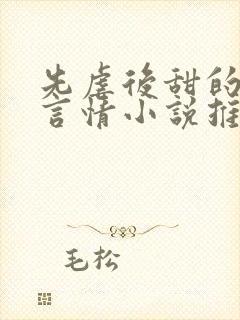 先虐後甜的
言情小說推
毛松